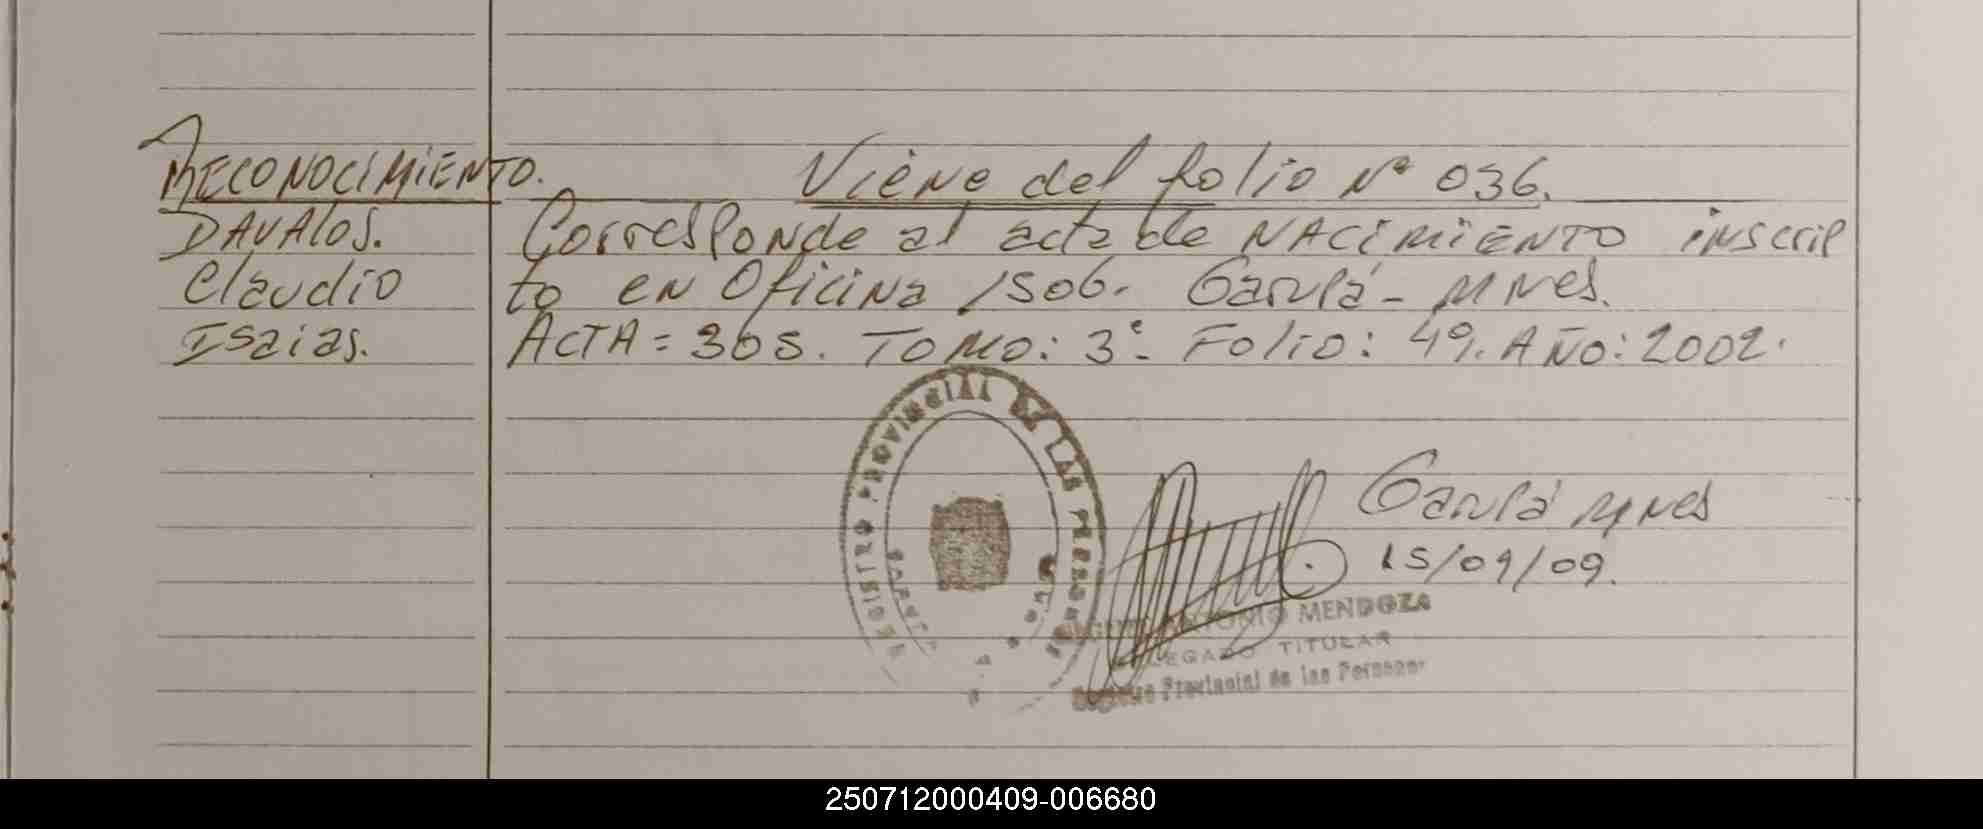 RECONOCIMIENTO.
Viene del folio Nº 036.
DAVAlos.
Claudio
Isaias.
Corresponde al acta de NACIMIENTO inscrip
to en Oficina 1506. Garupá - Mnes.
ACTA = 305. TOMO: 3º. Folio: 49. AÑO: 2002.
REGISTRO PROVINCIAL DE LAS PERSONAS
GARUPA
Garupá Mnes
15/09/09.
ANTONIO MENDOZA
DELEGADO TITULAR
Registro Provincial de las Personas
250712000409-006680